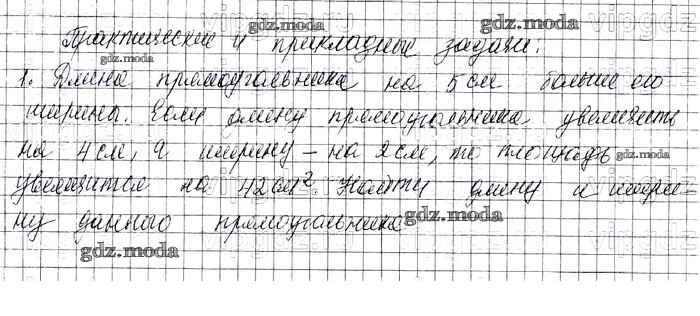 Практические и прикладные задачи.
1. Длина прямоугольника на 5 см больше его
ширины. Если длину прямоугольника увеличить
на 4 см, а ширину – на 2 см, то площадь
увеличится на 42 см². Найти длину и шири-
ну данного прямоугольника
gdz.moda
gdz.moda
gdz.moda
gdz.moda
gdz.moda
gdz.moda
gdz.moda
gdz.moda